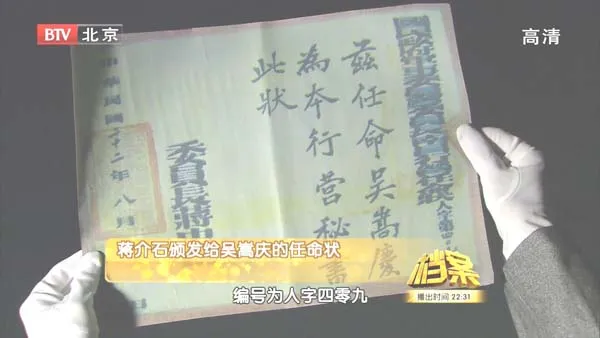 BTV 北京
高清
人字第四
茲任命吳嵩慶
為本行營秘書
此狀
委員長蔣中
中華民國二十二年八月 日
蒋介石颁发给吴嵩庆的任命状
档案
播出时间 22:31
编号为人字四零九